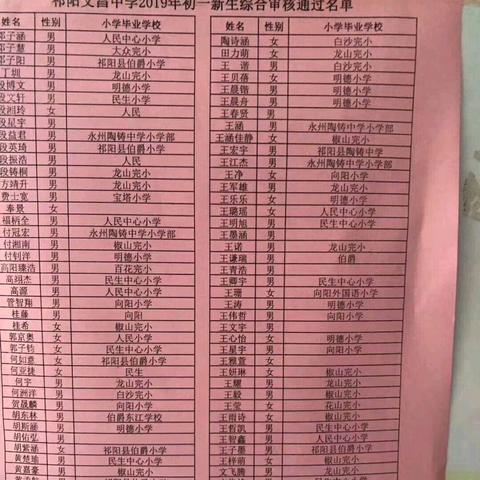 祁阳文昌中学2019年初一新生综合审核通过名单
姓名 性别 小学毕业学校
邓子涵 男 人民中心小学
邓子慧 男 大众完小
邓子阳 男 祁阳县伯爵小学
丁圳 男 龙山完小
段博文 男 明德小学
段文轩 男 民生小学
段湘玲 女 人民
段星宇 男
段益君 男 永州陶铸中学小学部
段英琦 男 祁阳县伯爵小学
段振浩 男 人民
段铸桐 男 龙山完小
方靖升 男 龙山完小
费士宽 男 宝塔小学
奉景 女
福柄全 男 人民中心小学
付冠宏 男 永州陶铸中学小学部
付湘南 男 椒山完小
付钊洋 男 明德小学
高阳臻浩 男 百花完小
高翊杰 男 民生中心小学
高源 男 人民中心小学
管智翔 男 向阳小学
桂藤 男 向阳
桂希 女 椒山完小
郭京奥 男 人民中心小学
郭子钧 女 民生中心小学
何如意 女 祁阳县伯爵小学
何亚捷 女 民生
何宇 男 龙山完小
何洲洋 男 白沙完小
贺晟麟 男 向阳小学
胡东林 男 伯爵东江学校
胡斯涵 男 明德小学
胡佑弘 男
胡紫涵 女 祁阳县伯爵小学
黄楚瑜 男 民生中心小学
黄嘉豪 男 椒山完小
姓名 性别 小学毕业学校
陶诗涵 女 白沙完小
田力萌 女 龙山完小
王谐 男 白沙完小
王贝蓓 女 明德小学
王晨锴 男 明德小学
王晨舟 男 明德小学
王春贤 男
王涵 男 永州陶铸中学小学部
王涵佳静 女 椒山完小
王宏宇 男 祁阳县陶铸中学
王江杰 男 永州陶铸中学小学部
王净 女 向阳小学
王军雄 男 龙山完小
王乐乐 女 明德小学
王璐瑶 女 人民中心小学
王明旭 男 民生中心小学
王墨涵 男
王诺 男 龙山完小
王谦瑞 男 伯爵
王青浩 男
王卿宇 男 民生中心小学
王珊 女 向阳外国语小学
王涛 男 明德小学
王伟哲 男 向阳小学
王文宇 男
王心怡 女 明德小学
王星宇 男 向阳小学
王雅萱 女
王妍琳 女 椒山完小
王耀 男 龙山完小
王毅 男 椒山完小
王莹 女 花山完小
王雨诗 女 椒山完小
王哲凯 男 民生中心小学
王智鑫 男 人民中心小学
王子墨 男 祁阳县伯爵小学
王梓萌 女 椒山完小
文飞腾 男 龙山完小